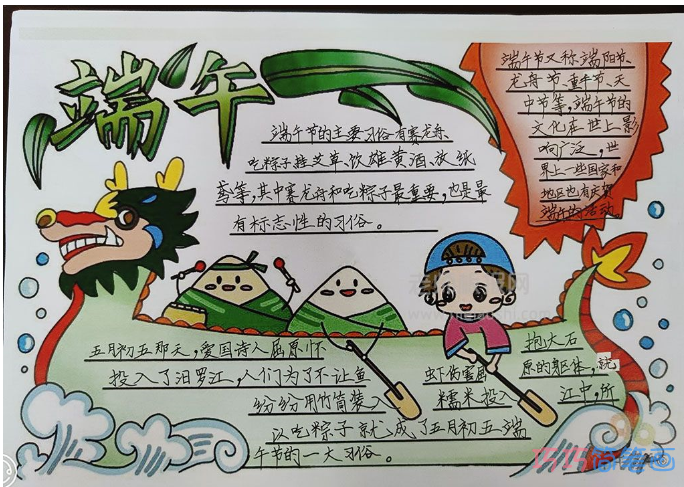 端午
端午节的主要习俗有赛龙舟、
吃粽子挂艾草、饮雄黄酒、放纸
鸢等,其中赛龙舟和吃粽子最重要,也是最
有标志性的习俗。
端午节又称端阳节、
龙舟节、重午节、天
中节等,端午节的
文化在世上影
响广泛,世
界上一些国家和
地区也有庆贺
端午的活动。
五月初五那天,爱国诗人屈原怀
抱大石
投入了汨罗江,人们为了不让鱼
虾伤害屈
原的躯体,就
纷纷用竹筒装入
糯米投入
江中,所
以吃粽子就成了五月初五端
午节的一大习俗。